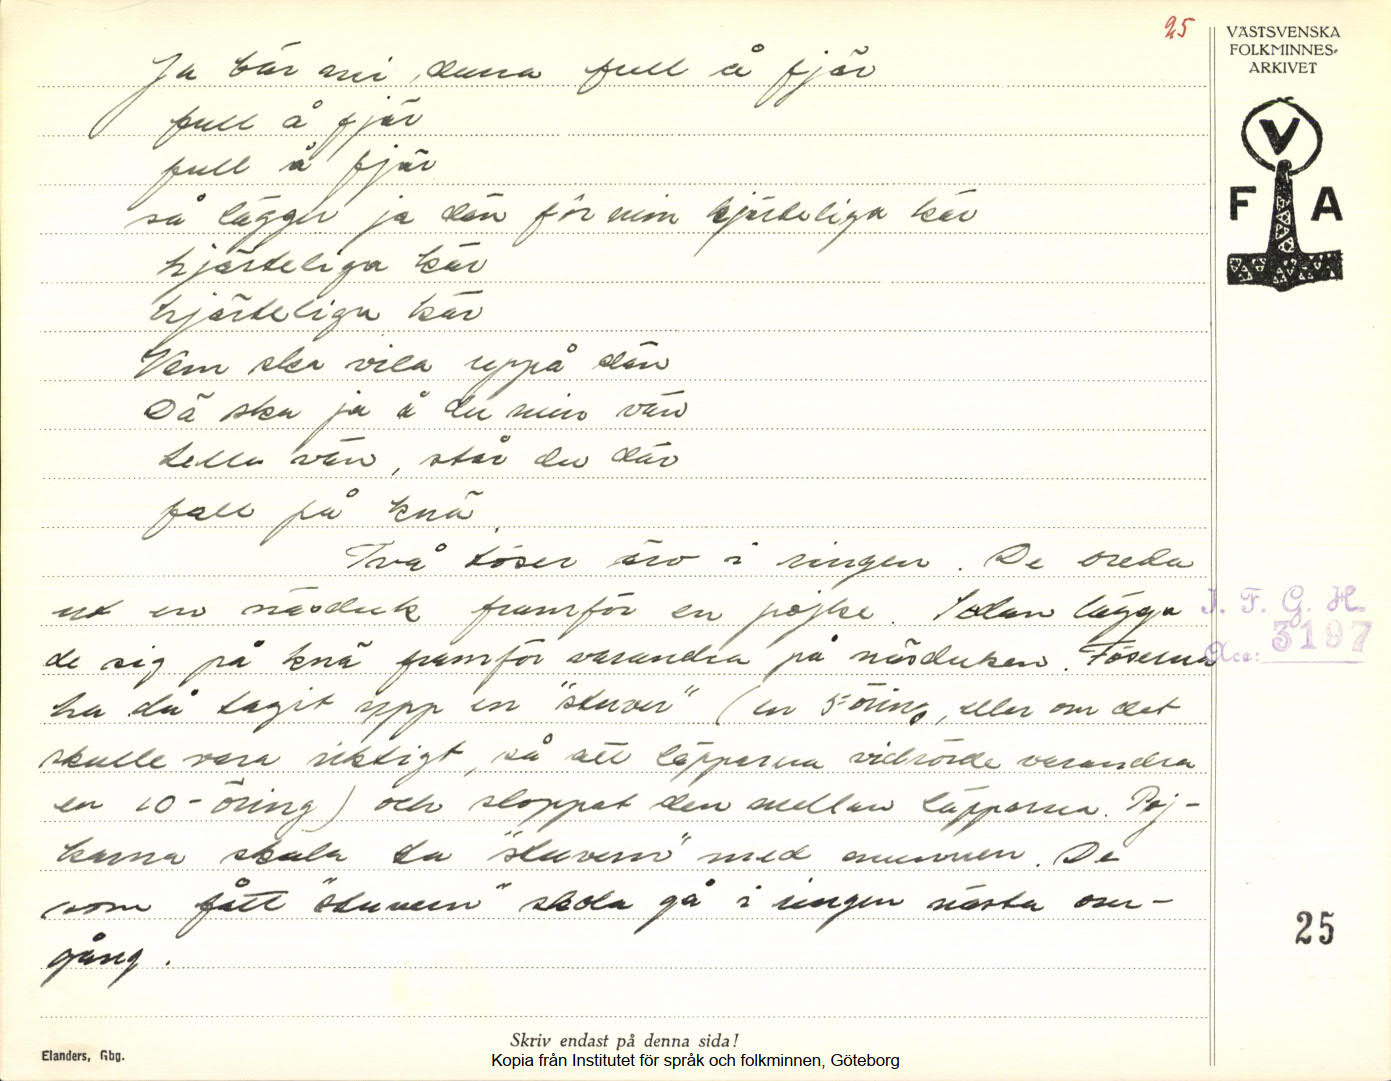 25
VÄSTSVENSKA
FOLKMINNES-
ARKIVET
V
F A
Ja bär mi duna full å fjär
full å fjär
full å fjär
så lägger ja dän för min hjärteliga kär
hjärteliga kär
hjärteliga kär
Vem ska vila uppå dän
Dä ska ja å du min vän
lella vän, står du där
fall på knä.
Två töser äro i ringen. De breda
ut en näsduk framför en pojke. Sedan lägga
de sig på knä framför varandra på näsduken. Töserna
ha då tagit upp en "stuver" (en 5-öring, eller om det
skulle vara riktigt, så att läpparna vidrörde varandra
en 10-öring) och stoppat den mellan läpparna. Poj-
karna skola ta "stuvern" med munnen. De
som fått "stuvern" skola gå i ringen nästa om-
gång.
I. F. G. H.
Acc: 3197
25
Skriv endast på denna sida!
Elanders, Gbg.
Kopia från Institutet för språk och folkminnen, Göteborg